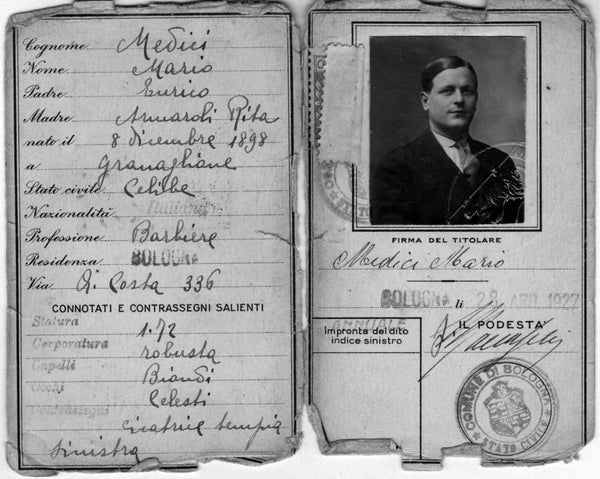 Cognome Medici
Nome Mario
Padre Enrico
Madre Armaroli Rita
nato il 8 dicembre 1898
a Granaglione
Stato civile Celibe
Nazionalità Italiana
Professione Barbiere
Residenza BOLOGNA
Via A. Costa 336
CONNOTATI E CONTRASSEGNI SALIENTI
Statura 1.72
Corporatura robusta
Capelli Biondi
Occhi Celesti
Contrassegni cicatrice tempia
sinistra
FIRMA DEL TITOLARE
Medici Mario
BOLOGNA li 28 APR 1927
ANNUALE
IL PODESTA'
Impronta del dito
indice sinistro
COMUNE DI BOLOGNA
STATO CIVILE